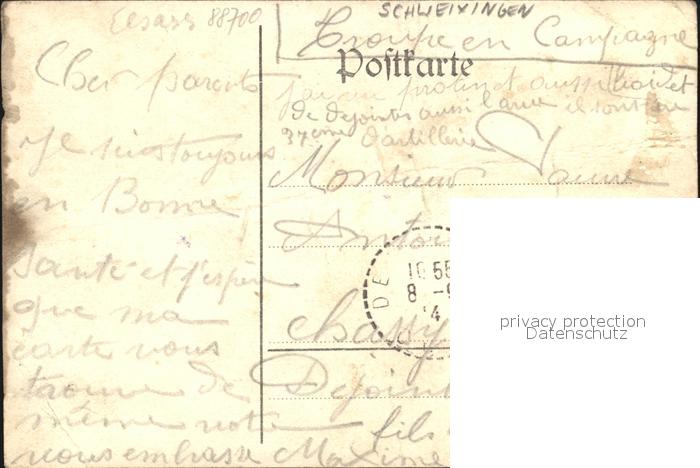 Elsass 88700
SCHWEIXINGEN
Troupe en Campagne
Postkarte
Cher parents
j'ai vu et aussi
de dejointes aussi l'autre ils sont au
37eme d'artillerie
Je suis toujours
en Bonne
Santé et j'espère
que ma
carte vous
trouve de
même votre fils
vous embrasse Maxime
Monsieur
Antoi
Chassy
Dejoint
DE
10 55
8 -9
14
privacy protection
Datenschutz